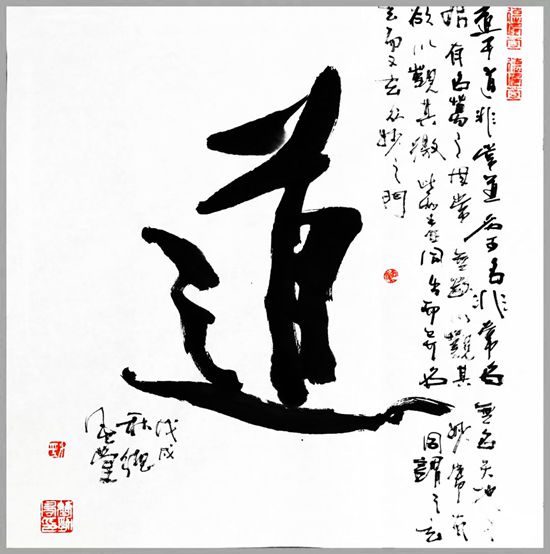 道可道非常道名可名非常名無名天地之
始有名萬之母常無欲以觀其妙常有
欲以觀其徼此兩者同出而異名同謂之玄
玄而又玄众妙之门
道
戊戌
秋